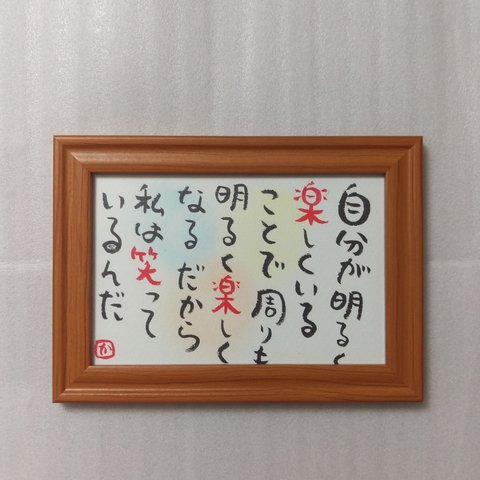 自分が明るく
楽しくいる
ことで周りも
明るく楽しく
なるだから
私は笑って
いるんだ
か